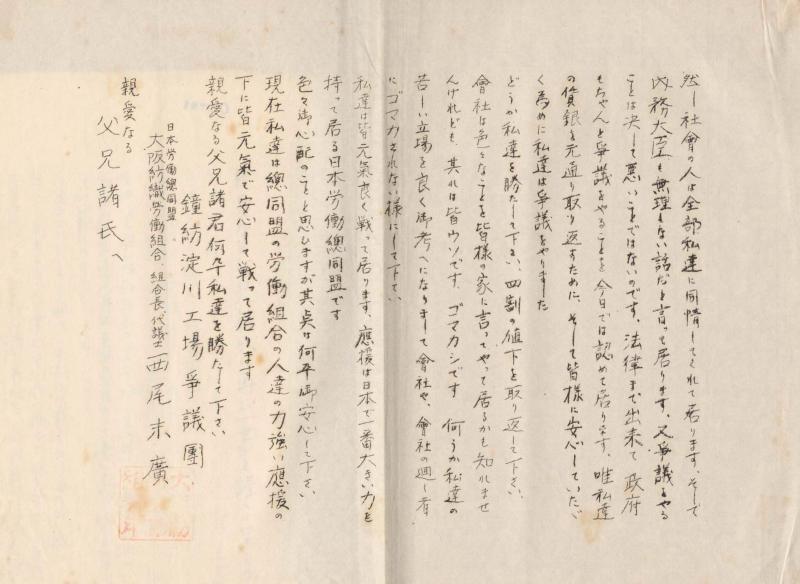 然し社會の人は全部私達に同情してくれて居ります、そして
内務大臣も無理もない話だと言って居ります、又爭議をやる
ことは決して悪いことではないのです、法律まで出来て政府
もちゃんと爭議をやることを今日では認めて居ります、唯私達
の賃銀を元通り取り返すために、そして皆様に安心していたゞ
く為めに私達は爭議をやりました
どうか私達を勝たして下さい、四割の値下を取り返して下さい、
會社は色々なことを皆様の家に言ってやって居るかも知れませ
んけれども、其れは皆ウソです、ゴマカシです 何うか私達の
苦しい立場を良く御考へになりまして會社や、會社の廻し者
にゴマカされない様にして下さい
私達は皆元氣良く戦って居ります、應援は日本で一番大きい力を
持って居る日本労働總同盟です
色々御心配のことと思ひますが其点は何卒御安心して下さい
現在私達は總同盟の労働組合の人達の力強い應援の
下に皆元氣で安心して戦って居ります
親愛なる父兄諸君何卒私達を勝たして下さい
鐘紡淀川工場爭議團
日本労働總同盟
大阪紡織労働組合、組合長代議士 西尾末廣
親愛なる
父兄諸氏へ